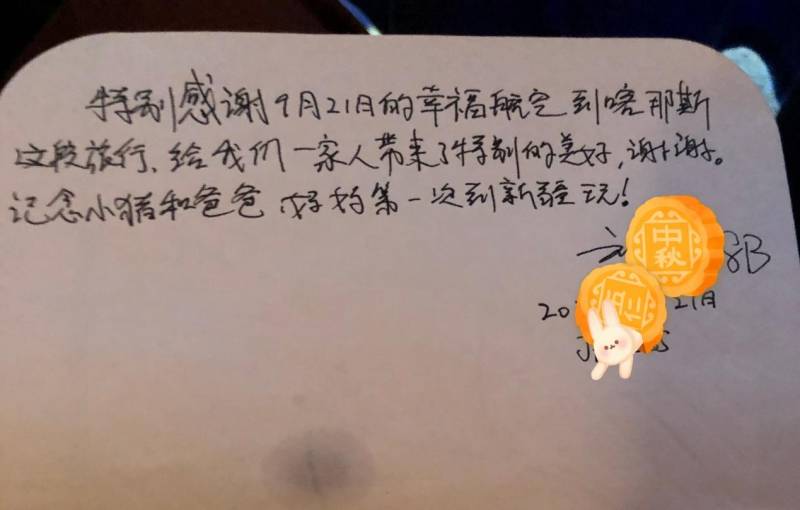 特别感谢9月21日的幸福航空到喀那斯
这段旅行,给我们一家人带来了特别的美好,谢谢。
记念小猪和爸爸 妈妈第一次到新疆玩!
中秋
20 21日